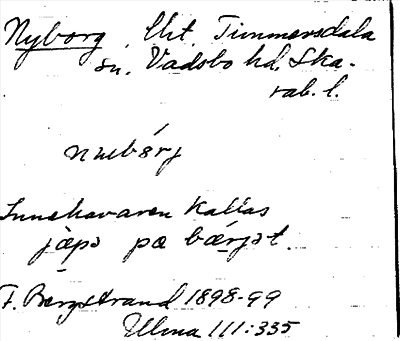 Nyborg. Utt. Timmersdala
sn. Vadsbo hd, Ska-
rab. l.
Innehavaren kallas
jàpə pæ bǽrjət.
F. Bergstrand 1898-99
Ullma III:335